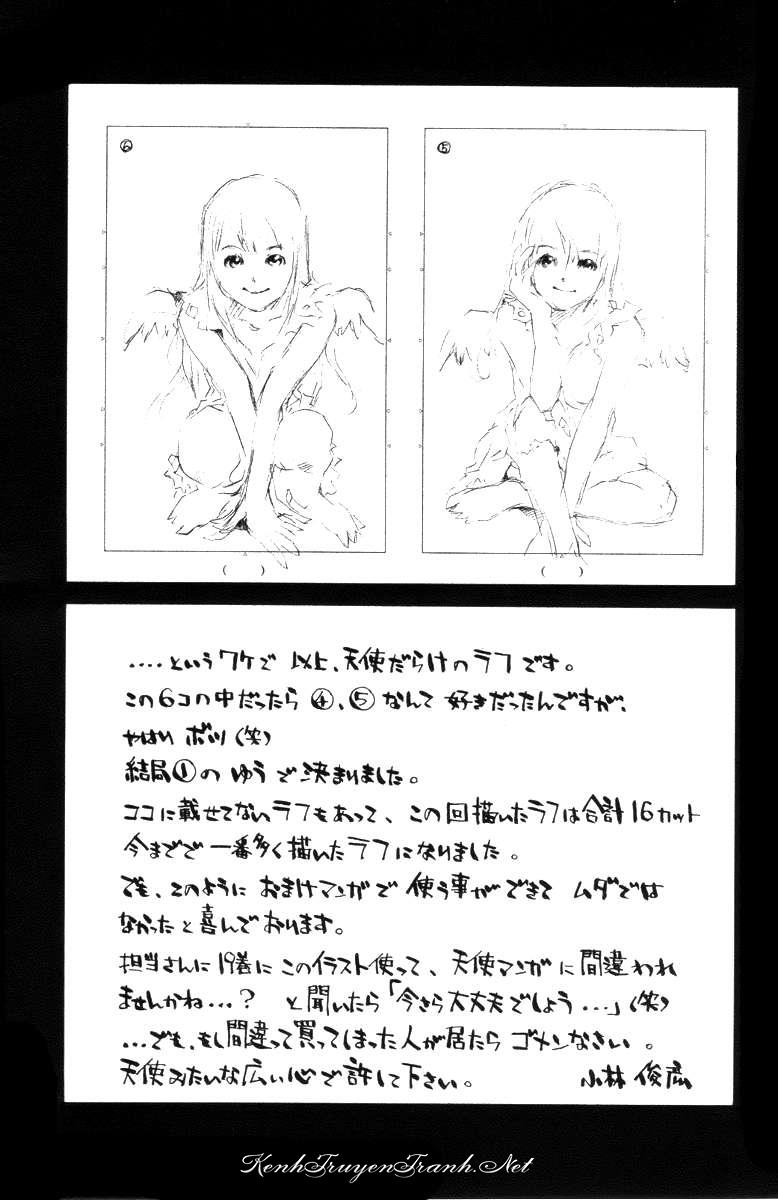 ⑥
⑤
( )
( )
....というワケで 以上、天使だらけのラフです。
この6コの中だったら ④、⑤なんて 好きだったんですが、
やはり ボツ(笑)
結局①の ゆうで決まりました。
ココに載せてないラフもあって、この回描いたラフは合計16カット
今までで一番多く描いたラフになりました。
でも、このように おまけマンガで 使う事ができて ムダでは
なかったと喜んでおります。
担当さんに19巻にこのイラスト使って、天使マンガに間違われ
ませんかね...? と聞いたら「今さら大丈夫でしょう...」(笑)
...でも、もし間違って買ってしまった人が居たら ゴメンなさい。
天使みたいな広い心で許して下さい。 小林 俊彦
KenhTruyenTranh.Net